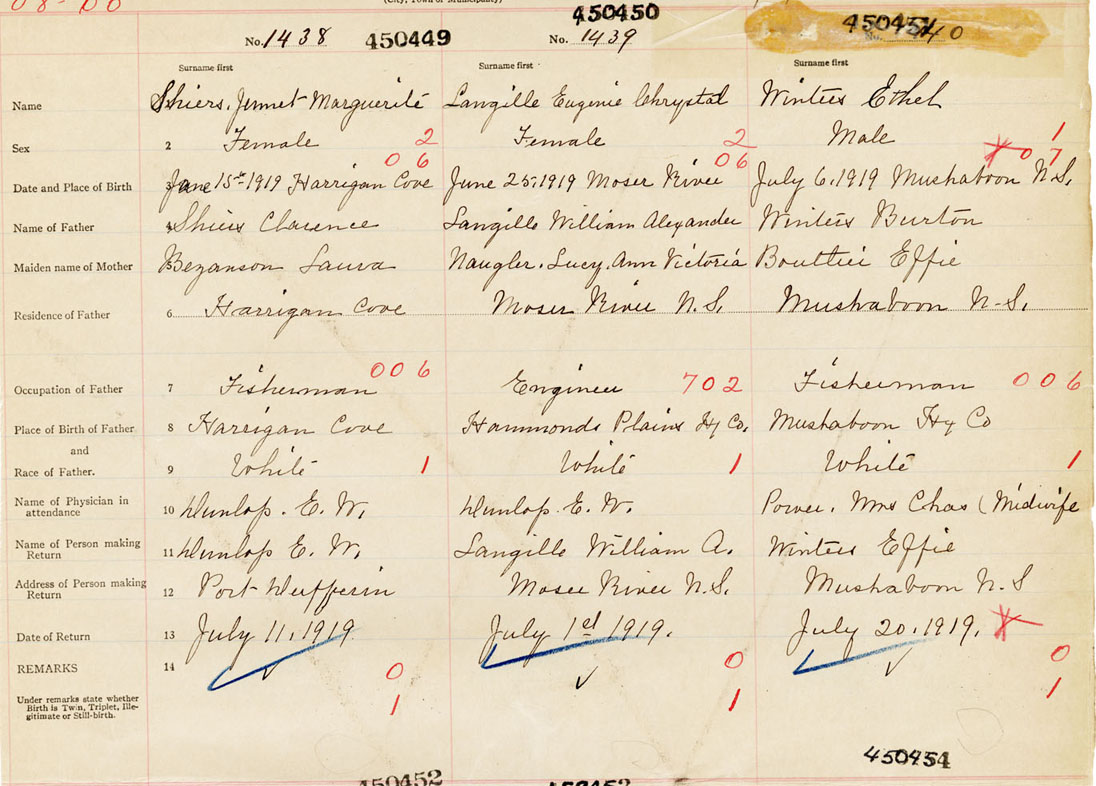 (City, Town or Municipality)
450450
No. 1438 450449 No. 1439 No. 40
Surname first Surname first Surname first
Name Shiers, Jennet Marguerite Langille Eugenie Chrystal Winters Ethel
Sex 2 Female 2 Female 2 Male 1
06 06 07
Date and Place of Birth 3 June 15th 1919 Harrigan Cove June 25, 1919 Moser River July 6, 1919 Mushaboon N.S.
Name of Father 4 Shiers Clarence Langille William Alexander Winters Burton
Maiden name of Mother 5 Bezanson Laura Naugler, Lucy, Ann Victoria Bouttier Effie
Residence of Father 6 Harrigan Cove Moser River N.S. Mushaboon N-S.
006
Occupation of Father 7 Fisherman Engineer 702 Fisherman 006
Place of Birth of Father 8 Harrigan Cove Hammonds Plains Hx Co. Mushaboon Hx Co
and
Race of Father. 9 White 1 White 1 White 1
Name of Physician in
attendance 10 Dunlop. E. W. Dunlop. E. W. Power. Mrs Chas (Midwife
Name of Person making
Return 11 Dunlop E. W. Langille William A. Winters Effie
Address of Person making
Return 12 Port Dufferin Moser River N.S. Mushaboon N.S
Date of Return 13 July 11, 1919 July 1st 1919. July 20, 1919.
REMARKS 14 0 0 0
Under remarks state whether
Birth is Twin, Triplet, Ille-
gitimate or Still-birth. 1 1 1
450452